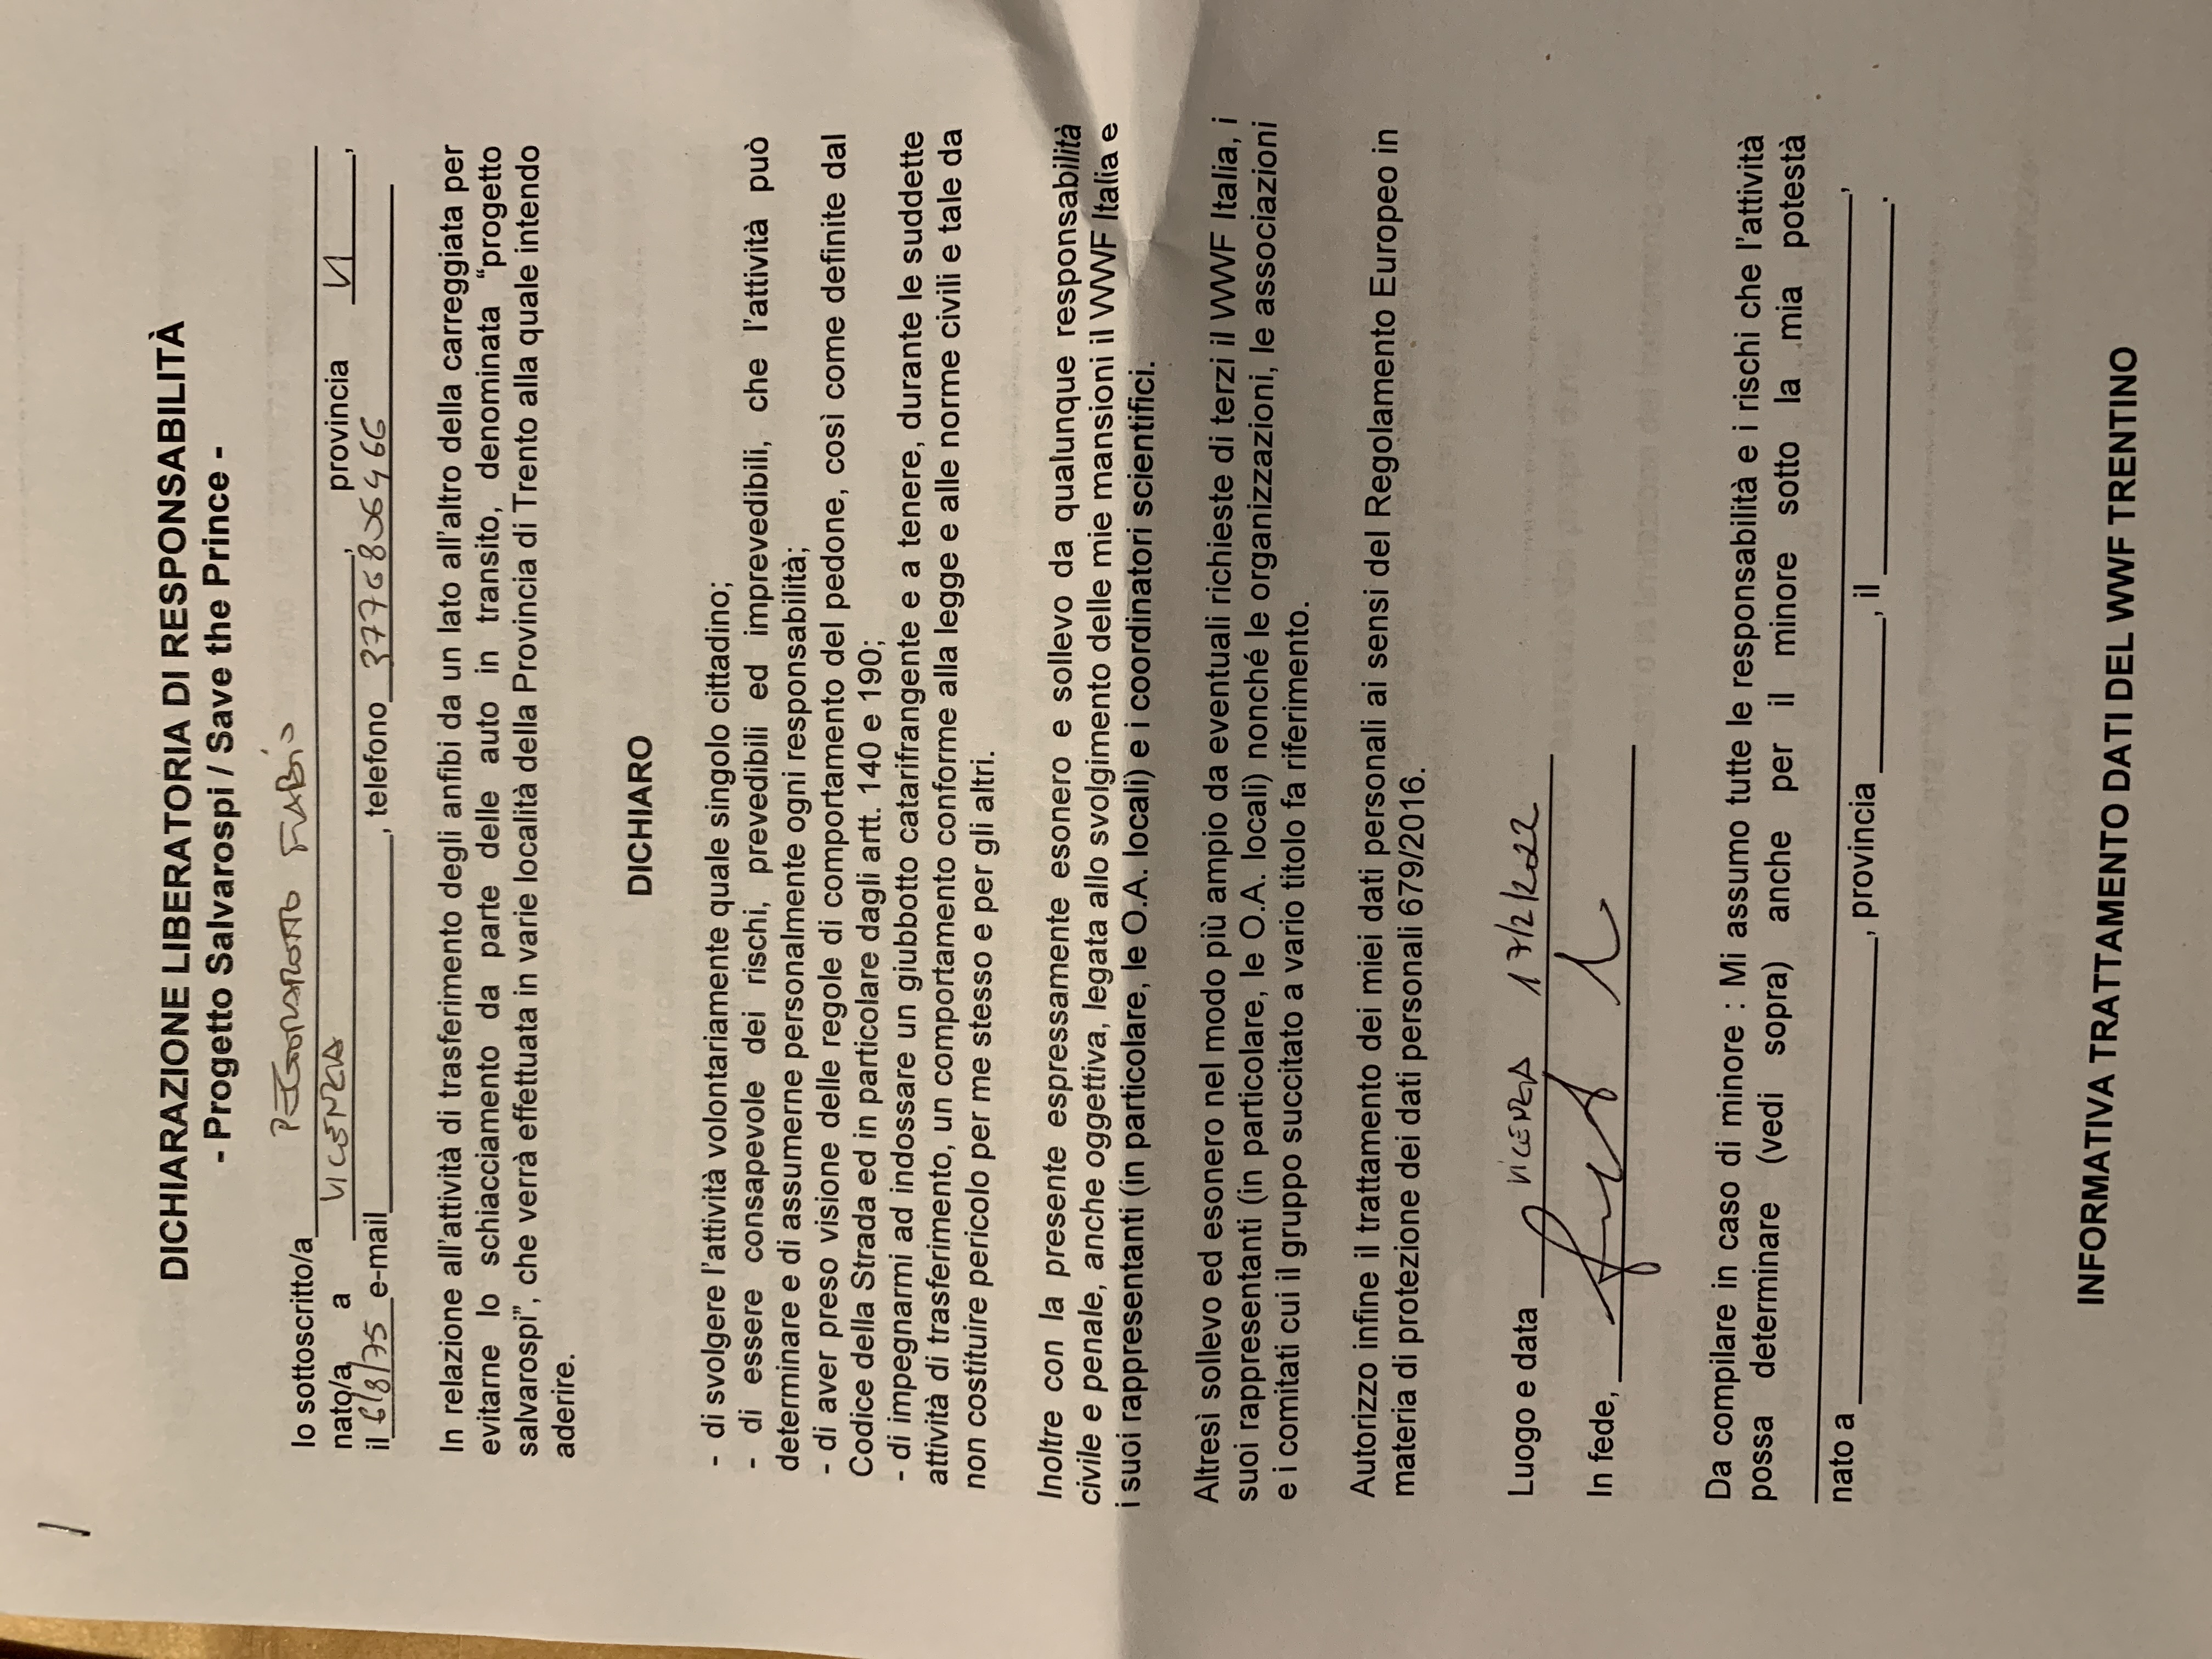 DICHIARAZIONE LIBERATORIA DI RESPONSABILITÀ
- Progetto Salvarospi / Save the Prince -
Io sottoscritto/a PEGORAROTTO FABIO
nato/a a VICENZA, provincia VI,
il 6/8/75 e-mail , telefono 3776806466
In relazione all'attività di trasferimento degli anfibi da un lato all'altro della carreggiata per
evitarne lo schiacciamento da parte delle auto in transito, denominata “progetto
salvarospi”, che verrà effettuata in varie località della Provincia di Trento alla quale intendo
aderire.
DICHIARO
- di svolgere l'attività volontariamente quale singolo cittadino;
- di essere consapevole dei rischi, prevedibili ed imprevedibili, che l'attività può
determinare e di assumerne personalmente ogni responsabilità;
- di aver preso visione delle regole di comportamento del pedone, così come definite dal
Codice della Strada ed in particolare dagli artt. 140 e 190;
- di impegnarmi ad indossare un giubbotto catarifrangente e a tenere, durante le suddette
attività di trasferimento, un comportamento conforme alla legge e alle norme civili e tale da
non costituire pericolo per me stesso e per gli altri.
Inoltre con la presente espressamente esonero e sollevo da qualunque responsabilità
civile e penale, anche oggettiva, legata allo svolgimento delle mie mansioni il WWF Italia e
i suoi rappresentanti (in particolare, le O.A. locali) e i coordinatori scientifici.
Altresì sollevo ed esonero nel modo più ampio da eventuali richieste di terzi il WWF Italia, i
suoi rappresentanti (in particolare, le O.A. locali) nonché le organizzazioni, le associazioni
e i comitati cui il gruppo succitato a vario titolo fa riferimento.
Autorizzo infine il trattamento dei miei dati personali ai sensi del Regolamento Europeo in
materia di protezione dei dati personali 679/2016.
Luogo e data VICENZA 17/2/2022
In fede,
Da compilare in caso di minore : Mi assumo tutte le responsabilità e i rischi che l'attività
possa determinare (vedi sopra) anche per il minore sotto la mia potestà
,
nato a , provincia , il .
INFORMATIVA TRATTAMENTO DATI DEL WWF TRENTINO